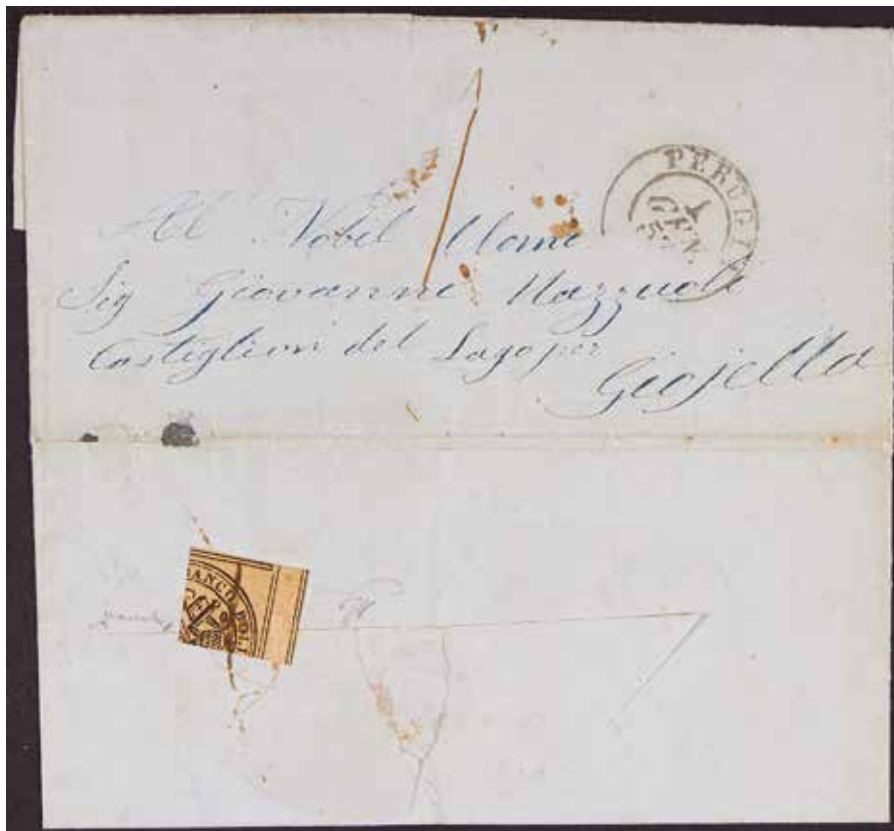 PERUGIA
1
GEN.
Al Nobil Uomo
Sig Giovanni Mazzuoli
Castiglion del Lago per
Giojella
FRANCO BOL